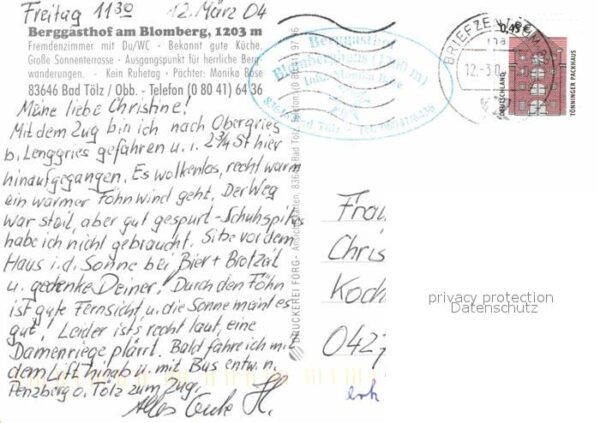 Freitag 11³⁰ 12. März 04
Berggasthof am Blomberg, 1203 m
Fremdenzimmer mit Du/WC · Bekannt gute Küche.
Große Sonnenterrasse · Ausgangspunkt für herrliche Berg-
wanderungen. · Kein Ruhetag · Pächter: Monika Bose
83646 Bad Tölz / Obb. - Telefon (0 80 41) 64 36
Meine liebe Christine!
Mit dem Zug bin ich nach Obergries
b. Lenggries gefahren u. i. 2¾ St hier
hinaufgegangen. Es wolkenlos, recht warm
ein warmer Föhnwind geht. Der Weg
war steil, aber gut gespurt - Schuhspikes
habe ich nicht gebraucht. Sitze vor dem
Haus i.d. Sonne bei Bier + Brotzeit
u. gedenke Deiner! Durch den Föhn
ist gute Fernsicht u. die Sonne meint es
gut! Leider ist's recht laut, eine
Damenriege plärrt. Bald fahre ich mit
dem Lift hinab u. mit Bus entw. n.
Penzberg o. Tölz zum Zug.
Alles Gute H.
DRUCKEREI FÖRG
Berggasthof
Blomberghaus
Inh. Monika Bose
Bad Tölz · Tel. 08041/6436
BRIEFZENTRUM
12.-3.0
0,45 €
DEUTSCHLAND
TÖNNINGER PACKHAUS
Frau
Chris
Koch
042
privacy protection
Datenschutz